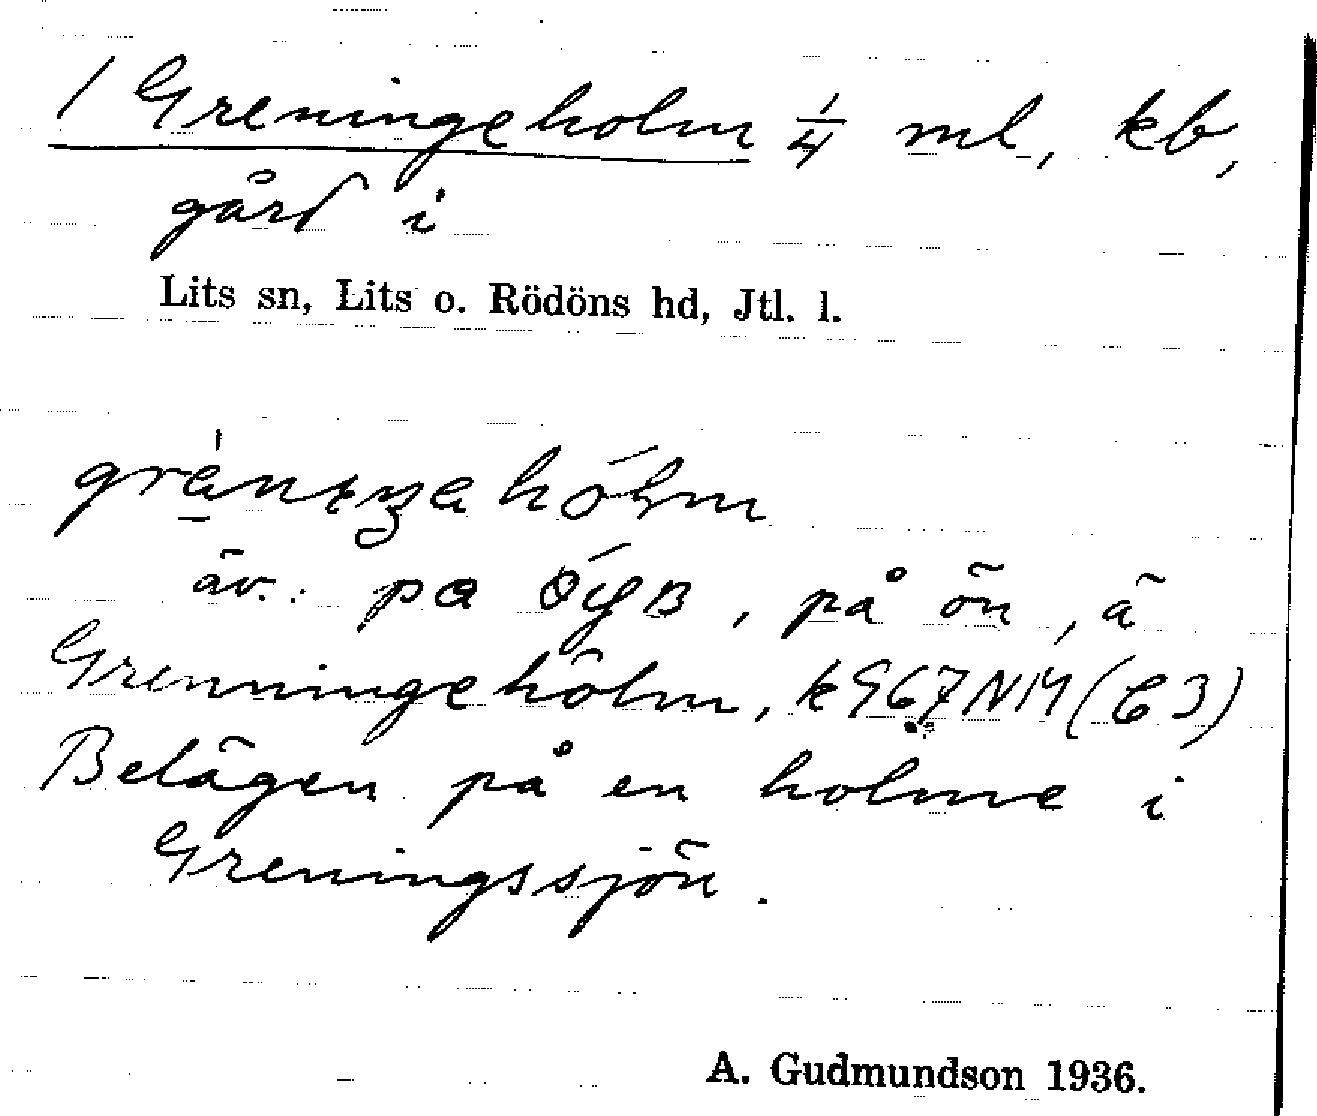 1 Greningeholm ¼ ml, kb,
gård i
Lits sn, Lits o. Rödöns hd, Jtl. l.
hólm
äv. : pa , på ön, ä
Grenningehölm, k 967 NM (C3)
Belägen på en holme i
Greningssjön.
A. Gudmundson 1936.